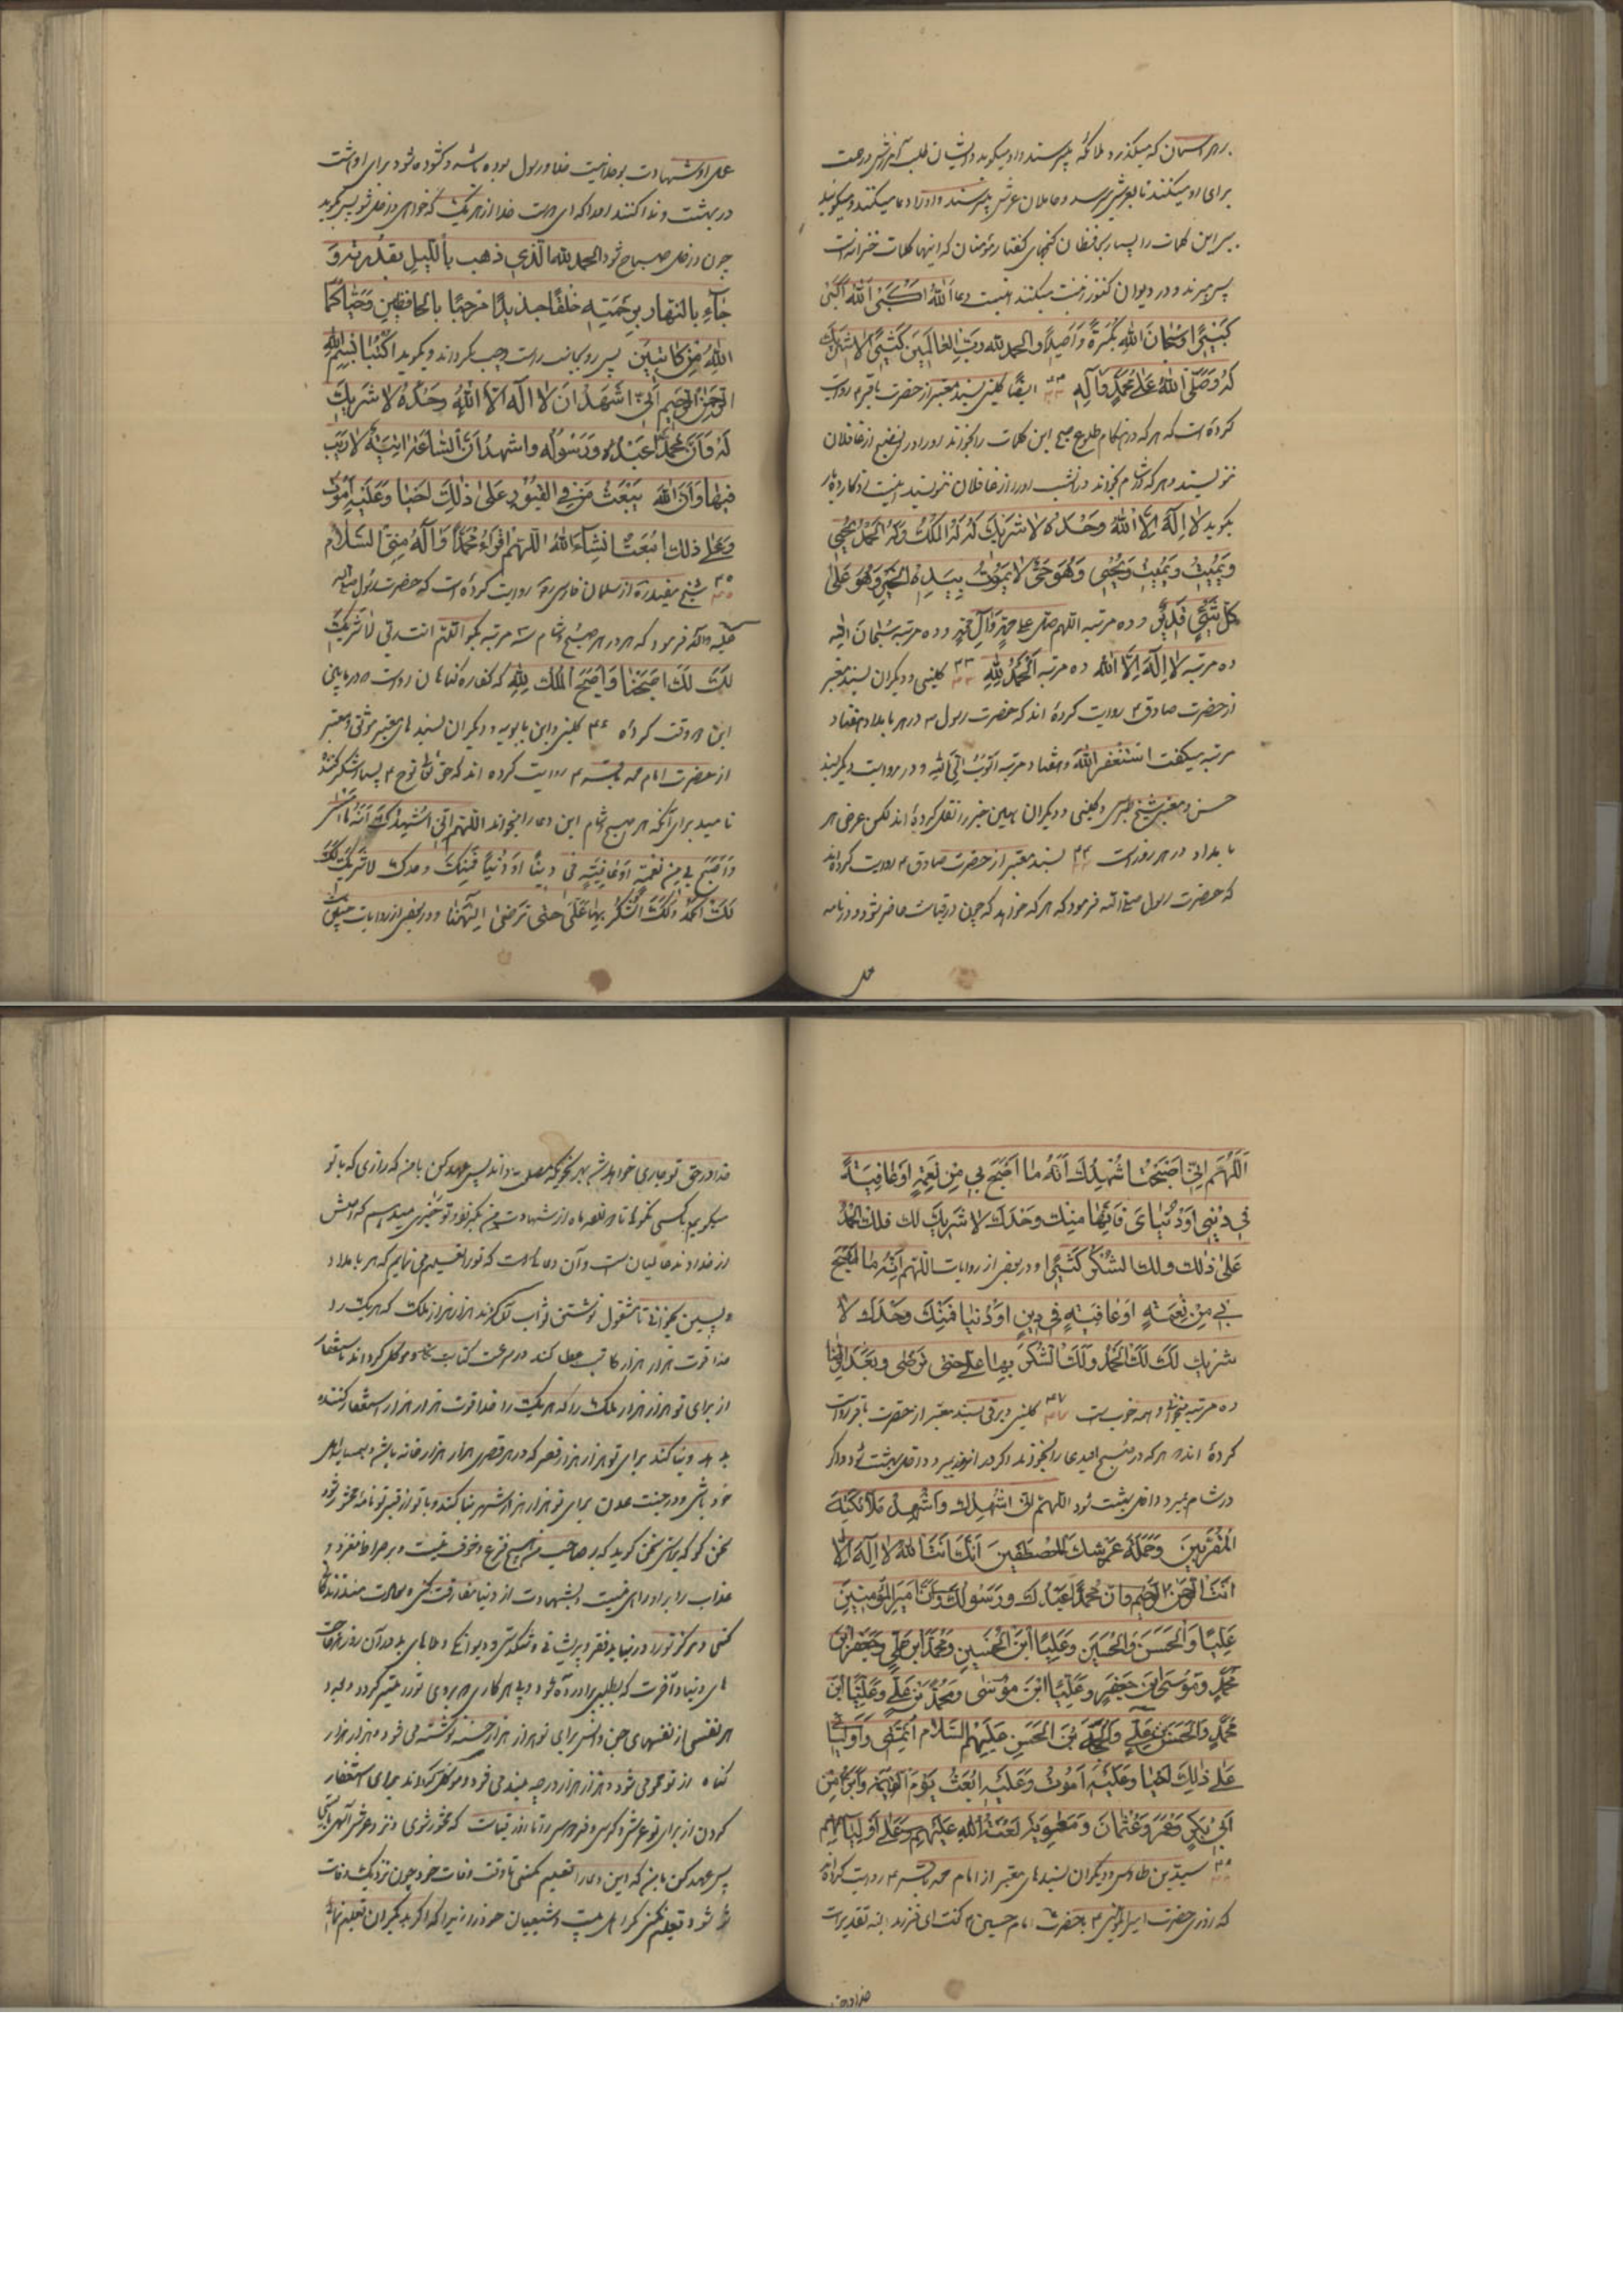 بهر آسمان که میگذرد ملائکه میپرسند و او میگوید و ایشان طلب آمرزش و رحمت
برای او میکنند تا بعرش میرسد و حاملان عرش میپرسند و او را دعا میکنند و میگویند
ببر این کلمات را بسوی حافظان گنجهای گفتار مؤمنان که اینها کلمات خزانه است
پس میبرند و در دیوان کنوز ثبت میکنند اینست دعا اَللّٰهُ اَکْبَرُ اَللّٰهُ اَکْبَرُ
کَبیرًا وَسُبحانَ اللهِ بُکْرَةً وَاَصیلًا والحمد لله ربّ العالمین کثیرًا لا شریک
لهُ وَصَلَّی اللهُ عَلی مُحَمَّدٍ وَآلِهِ ایضًا کلینی بسند معتبر از حضرت باقر ۴ روایت
کرده است که هر که در هنگام طلوع صبح این کلمات را بخواند او را در آن صبح از غافلان
ننویسند و هر که در شام بخواند در آن شب او را از غافلان ننویسند
بگوید لا اِلٰهَ اِلَّا اللهُ وَحْدَهُ لا شَرِیكَ لَهُ لَهُ المُلْكُ وَلَهُ الحَمْدُ یُحْیی
وَیُمیتُ وَیُمیتُ وَیُحْیی وَهُوَ حَیٌّ لا یَمُوتُ بِیَدِهِ الخَیْرُ وَهُوَ عَلی
کُلِّ شَیْءٍ قَدیرٌ و ده مرتبه اللهم صل علی محمد وآل محمد و ده مرتبه سُبْحانَ اللهِ
ده مرتبه لا اِلٰهَ اِلَّا اللهُ ده مرتبه اَلْحَمْدُ لِلّٰهِ ۳۳ کلینی و دیگران بسند معتبر
از حضرت صادق ۴ روایت کرده اند که حضرت رسول ص در هر بامداد هفتاد
مرتبه میگفت اَستَغفِرُ اللهَ و هفتاد مرتبه اَتُوبُ اِلَی اللهِ و در روایت دیگر بسند
حسن و معتبر شیخ طبرسی و کلینی و دیگران همین خبر را نقل کرده اند لکن عوض هر
بامداد در هر روز است ۳۴ بسند معتبر از حضرت صادق ۴ روایت کرده اند
که حضرت رسول صلی الله فرمود که هر که خواهد که چون در قیامت حاضر شود و در نامه
عمل
عمل او شهادت بوحدانیت خدا و رسول بوده باشد و گشوده شود برای او هشت
در بهشت و ندا کنند او را که ای دوست خدا از هر یک که خواهی داخل شو پس بگوید
چون داخل صباح شود الحمد لله الّذی ذهب باللّیل بقدرته وَ
جآءَ بالنّهار برحمته خلقًا جدیدًا مرحبًا بالحافظین وَحیّاکما
اللهُ مِن کاتبین پس رو بجانب راست و چپ بگرداند و بگوید اکتُبا بسم الله
الرحمن الرحیم انّی اشهد ان لا اله الا الله وَحدَهُ لا شریك
لَهُ وَاَنَّ محمّدًا عَبْدُهُ وَرَسُولُه واشهد اَنّ السّاعَةَ اتِیَةٌ لا رَیْبَ
فیها وَاَنَّ اللهَ یَبْعَثُ مَن فِی القُبُورِ عَلی ذٰلِكَ اَحْیا وَعَلَیهِ اَمُوتُ
وَعَلی ذلك اُبْعَثُ انشاءَ اللهُ اللّهمّ اقرَء محمّدًا وَآلَهُ مِنّی السّلام
۳۵ شیخ مفید ره از سلمان فارسی ره روایت کرده است که حضرت رسول صلی الله
علیه وآله فرمود که هر که در هر صبح و شام سه مرتبه بگوید اللّهمّ انت ربّی لا شریكَ
لَكَ لَكَ اَصْبَحْنا وَاَصْبَحَ المُلْكُ لِلّٰهِ که کفاره گناهان اوست در مابین
این دو وقت گردد ۳۶ کلینی و ابن بابویه و دیگران بسندهای معتبر موثق و معتبر
از حضرت امام محمد باقر ۴ روایت کرده اند که حق تعالی نوح ۴ را بسیار شکر کننده
نامید برای آنکه هر صبح و شام این دعا را میخواند اللّهمّ اِنّی اُشهِدُكَ اَنّهُ ما اَمْسی
وَاَصْبَحَ بی مِنْ نِعْمَةٍ اَوْ عافِیَةٍ فی دِینٍ اَوْ دُنْیا فَمِنْكَ وحدك لا شَریكَ لَكَ
لَكَ الحَمْدُ وَلَكَ الشُّکْرُ بِها عَلَیَّ حتی تَرضی اِلهَنا و در بعضی از روایات چنین
اَللّٰهُمَّ اِنّی اَصْبَحْتُ اُشْهِدُكَ اَنَّهُ ما اَصْبَحَ بی مِنْ نِعْمَةٍ اَوْ عافِیَةٍ
فی دِیْنی اَوْ دُنْیایَ فَاِنَّها مِنْكَ وَحْدَكَ لا شَرِیكَ لك فلك الحمدُ
عَلی ذٰلِك ولك الشُّکْرُ کَثیرًا و در بعضی از روایات اللّهمّ اِنّهُ ما اَصْبَحَ
بی مِنْ نِعْمَةٍ اَوْ عافِیَةٍ فی دِینٍ اَوْ دُنْیا فَمِنْكَ وَحْدَكَ لا
شریك لَكَ لَكَ الحَمْدُ وَلَكَ الشُّکْرُ بِها عَلَیَّ حتی تَرْضی وبَعْدَ الرِّضا
ده مرتبه بخواند و همه خوب است ۳۷ کلینی و برقی بسند معتبر از حضرت باقر روایت
کرده اند هر که در صبح این دعا را بخواند اگر در آن روز بمیرد داخل بهشت شود و اگر
در شام بمیرد داخل بهشت شود اللّهمّ انّی اُشْهِدُك واُشْهِدُ مَلائِکَتَكَ
المُقَرَّبینَ وَحَمَلَةَ عَرْشِكَ المُصْطَفَینَ اَنَّكَ اَنْتَ اللهُ لا اِلٰهَ اِلّا
اَنْتَ الرّحمن الرّحیم وانّ مُحَمَّدًا عَبْدُك ورَسُولُك وانَّ اَمیرَ المُؤمِنِینَ
عَلِیًّا وَالْحَسَنَ وَالْحُسَیْنَ وَعَلِیًّا ابْنَ الْحُسَیْنِ وَمُحَمَّدًا ابْنَ عَلِیٍّ وَجَعْفَرَ ابْنَ
مُحَمَّدٍ وَمُوسَی بْنَ جَعْفَرٍ وَعَلِیًّا ابْنَ مُوسی وَمُحَمَّدَ بْنَ عَلِیٍّ وَعَلِیًّا ابْنَ
مُحَمَّدٍ وَالْحَسَنَ بْنَ عَلِیٍّ بْنَ الْحَسَنِ عَلَیْهِمُ السَّلام اَئِمَّتی وَاَوْلِیائی
عَلی ذٰلِكَ اَحْیا وَعَلَیْهِ اَمُوتُ وَعَلَیْهِ اُبْعَثُ یَوْمَ القِیمة وَاَبْرَءُ مِنْ
اَبی بَکْرٍ وَعُمَرَ وَعُثْمانَ وَمُعٰوِیَةَ لَعْنَةُ اللهِ عَلَیْهِمْ وَعَلی اَوْلِیائِهِمْ
۳۸ سید بن طاوس و دیگران بسندهای معتبر از امام محمد باقر ۴ روایت کرده اند
که روزی حضرت امیر المؤمنین ۴ بحضرت امام حسین ۴ گفت ای فرزند البته تقدیرات
خدا در حق
خدا در حق تو جاری خواهد شد بهر نحو که مصلحت داند پس عهد کن با من که رازی که با تو
میگویم بکسی نگوئی تا دوازده ماه از شهادت من بگذرد و تو را خبری میدهم که اصلش
از خداوند عالمیان است و آن دعائیست که تو را تعلیم می نمایم که هر بامداد
و پسین بخوانی تا مشغول نوشتن ثواب تو گردند هزار هزار ملک که هر یک را
خدا قوت هزار هزار کاتب عطا کند در سرعت کتابت و موکل گرداند باستغفار
از برای تو هزار هزار ملک را که هر یک را خدا قوت هزار هزار استغفار کننده
بدهد و بنا کند برای تو هزار هزار قصر که در هر قصری هزار هزار خانه باشد و همسایه
جد باشی و در جنت عدن برای تو هزار هزار شهر بنا کند و با تو از قبر تو نامه محشور شود
سخن گو که سخن گوید که بر صاحب من هیچ فزع و خوف نیست و بر صراط نلغزد و
عذاب را بر او راهی نیست و بشهادت از دنیا مفارقت کنی و سعادتمند زندگانی
کنی و هرگز تو را در دنیا فقر و پریشانی و شکستگی و دیوانگی و در آن روز حاجت
های دنیا و آخرت که بطلبی برآورده شود و بهر کاری رو آوری تو را میسر گردد و بعدد
هر نفسی از نفسهای جن و انس برای تو هزار هزار حسنه نوشته می شود و هزار هزار
گناه از تو محو می شود و هزار هزار درجه بلند می شود و موکل گرداند برای استغفار
کردن از برای تو عرش و کرسی و فردوس را تا روز قیامت که محشور شوی و نزد عرش الهی بایستی
پس عهد کن با من که این دعا را تعلیم نکنی تا وقت وفات خود و چون نزدیک وفات
شود تعلیم نکنی مگر اهل بیت و شیعیان خود را زیرا که اگر بدیگران تعلیم نمائی